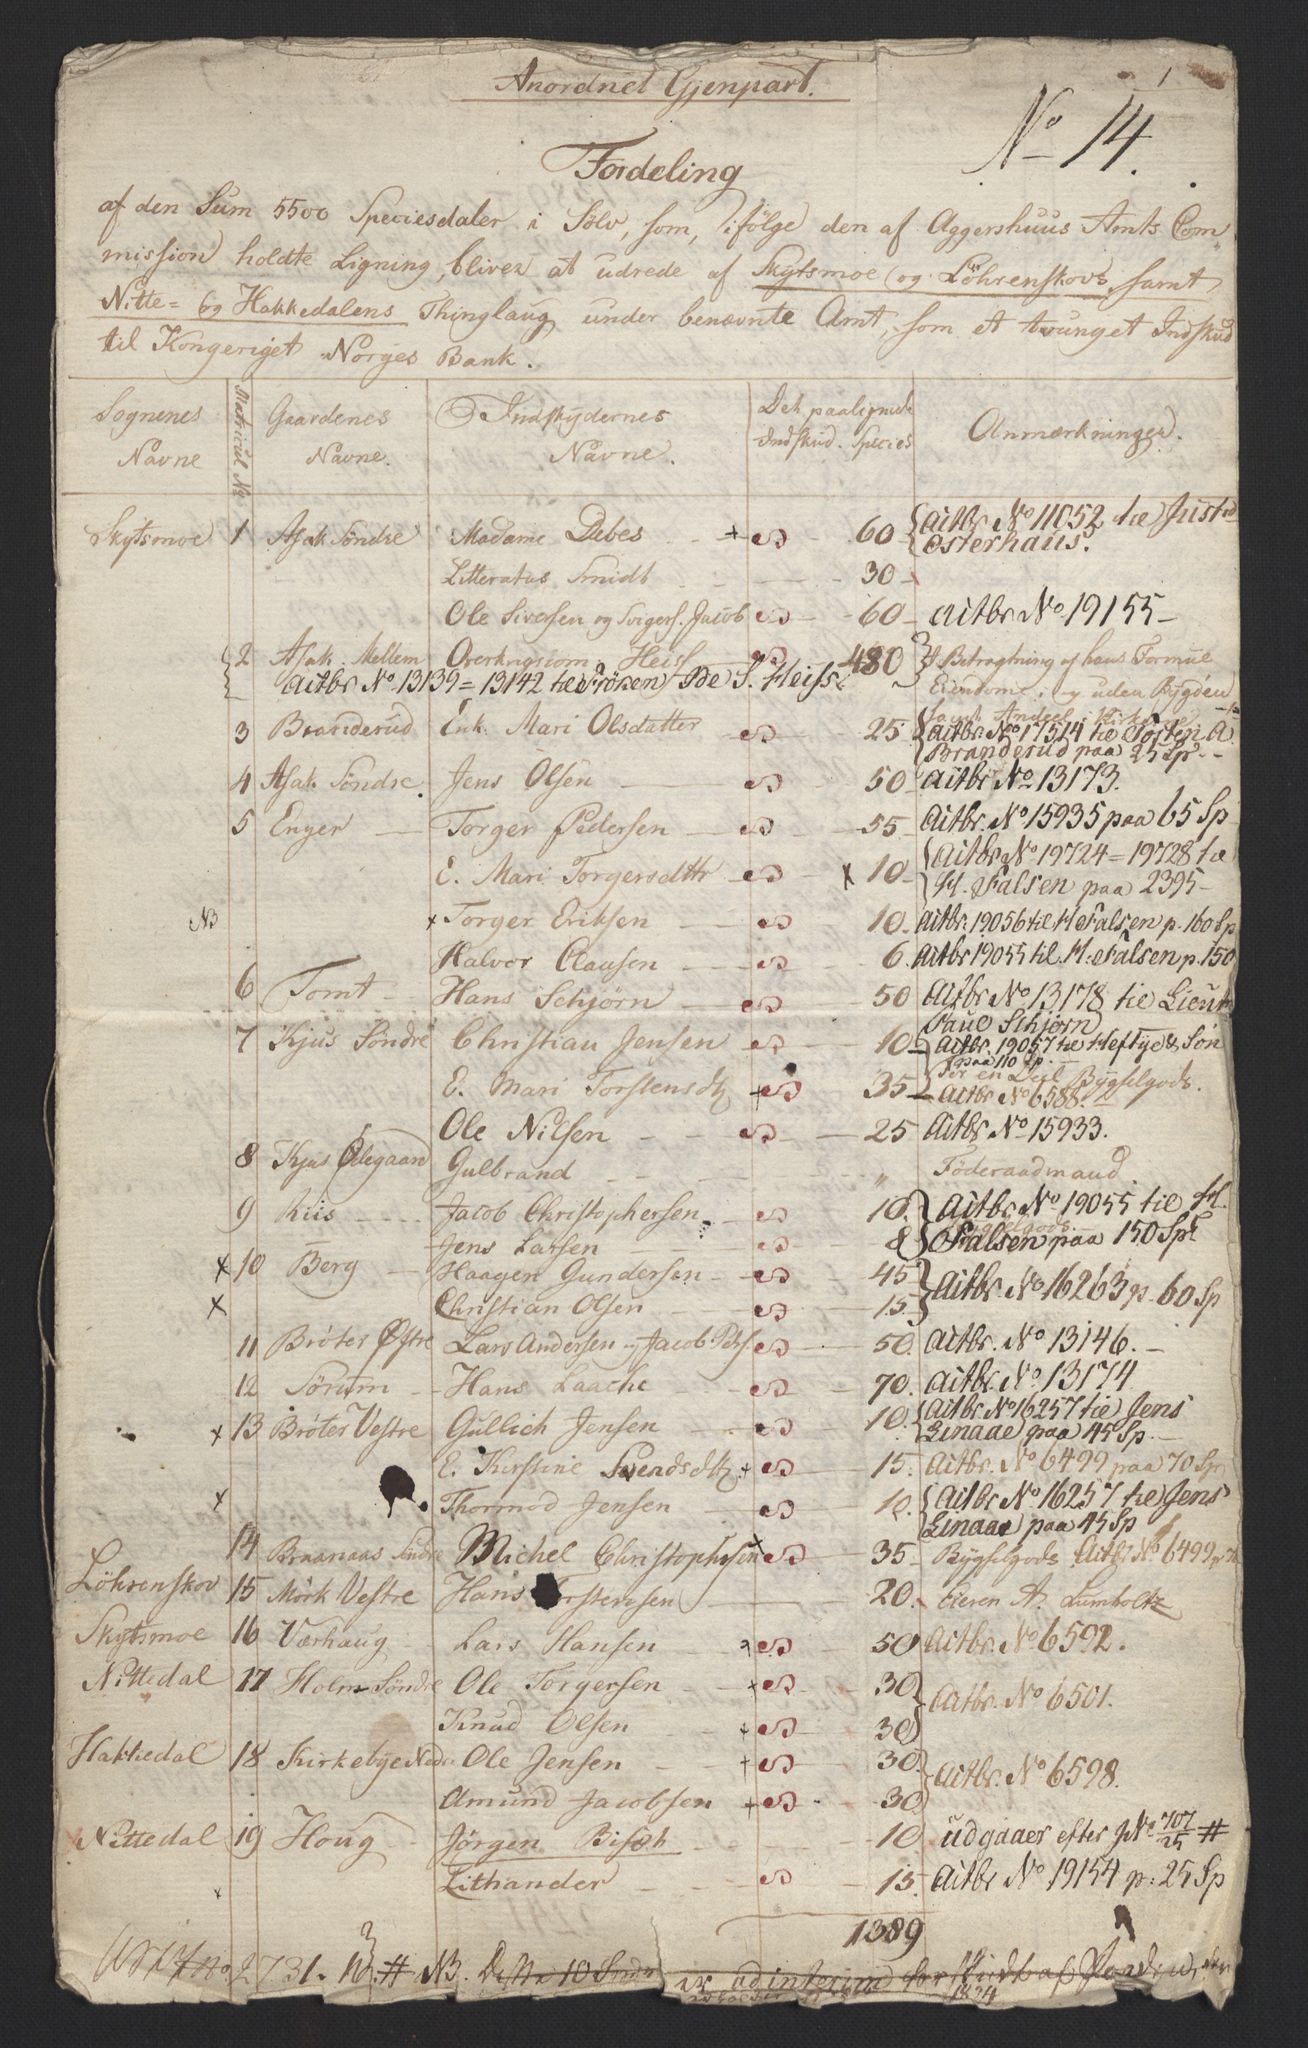 Anordnet Gjenpart.
1
No 14.
Fordeling
af den Sum 5500 Speciesdaler i Sølv, som, ifölge den af Aggershuus Amts Com
mission holdte Ligning, bliver at udrede af Skytsmoe og Löhrenskovs samt
Nitte= og Hakkedalens Thinglaug under benævnte Amt, som et tvunget Indskud
til Kongeriget Norges Bank.
Sognenes Navne | Matricul No | Gaardenes Navne. | Indskydernes Navne. | Det paalignede Indskud. Species | Anmærkninger.
Skytsmoe 1 Asak Söndre Madame Debes 60 Actbr. No 11052 til Justid
Osterhaus.
Litteratus Smidt 30
Ole Siversen og Svigers. Jacob 60 actbr No 19155
2 Asak Mellem Overkrigscom. Heiss 480 I Betragtning af hans Formue
Actbr No 13139 = 13142 til Fröken Be S. Heiss
Eiendome i og uden Bygden
samt Andeel i Kirkerne
3 Branderud Enk. Mari Olsdatter 25 actbr No 17514 til Torsten A.
Branderud paa 25 Sp.
4 Asak Söndre Jens Olsen 50 actbr No 13173.
5 Enger Torger Pedersen 55 Actbr. No 15935 paa 65 Sp
E. Mari Torgersdttr x 10 Actbr No 19724 = 19728 til
H. Falsen paa 2395
NB x Torger Eriksen 10 actbr. 19056 til H Falsen p. 160 Sp
Halvor Clausen 6 actbr 19055 til H. Falsen p. 150
6 Tomt Hans Schjörn 50 Actbr No 13178 til Lieutn
Paul Schjörn
7 Kjus Söndre Christian Jensen 10 Actbr. 19057 til Heftye & Søn
paa 110 Sp.
For en Deel Bygselgods.
E. Mari Torstensdtr + 35 actbr No 6588.
Ole Nilsen 25 Actbr No 15933.
8 Kjus Ødegaard Gulbrand " Föderaadmand
9 Riis Jacob Christophersen 10 Actbr No 19055 til H.
Bygselgods.
Jens Larsen 8 Falsen paa 150 Sp
x 10 Berg Haagen Gundersen 45 actbr. No 16263 p. 60 Sp
x Christian Olsen 15
11 Brøter Østre Lars Andersen og Jacob Pers. 50 actbr. No 13146.
12 Sörum Hans Laache 70 actbr. No 13174
x 13 Bröter Vestre Gullich Jensen 10 actbr No 16257 til Jens
Linaae paa 45 Sp.
E. Kirstine Svendsdtr + 15 actbr. No 6499 paa 70 Sp
x Thormod Jensen 10 Actbr No 16257 til Jens
Linaae paa 45 Sp
14 Braanaas Söndre Michel Christophersen x 35 Bygselgods Actbr No 6499 p 70
Löhrenskov 15 Mörk Vestre Hans Torstensen 20 Eieren A. Lumholtz
Skytsmoe 16 Værhaug Lars Hansen 50 Actbr. No 6592.
Nittedal 17 Holm Söndre Ole Torgersen + 30 Actbr. No 6501.
Knud Olsen + 30
Hakkedal 18 Kirkebye Nedre Ole Jensen + 30 actbr. No 6598.
Amund Jacobsen + 30
Nittedal 19 Houg Jörgen Bisæth 10 udgaaer efter JNo 707/25 #
Lithander 15 Actbr No 19154 p: 25 Sp
1389
2731. # NB. Disse 10 er ad interim forskudt af
1824